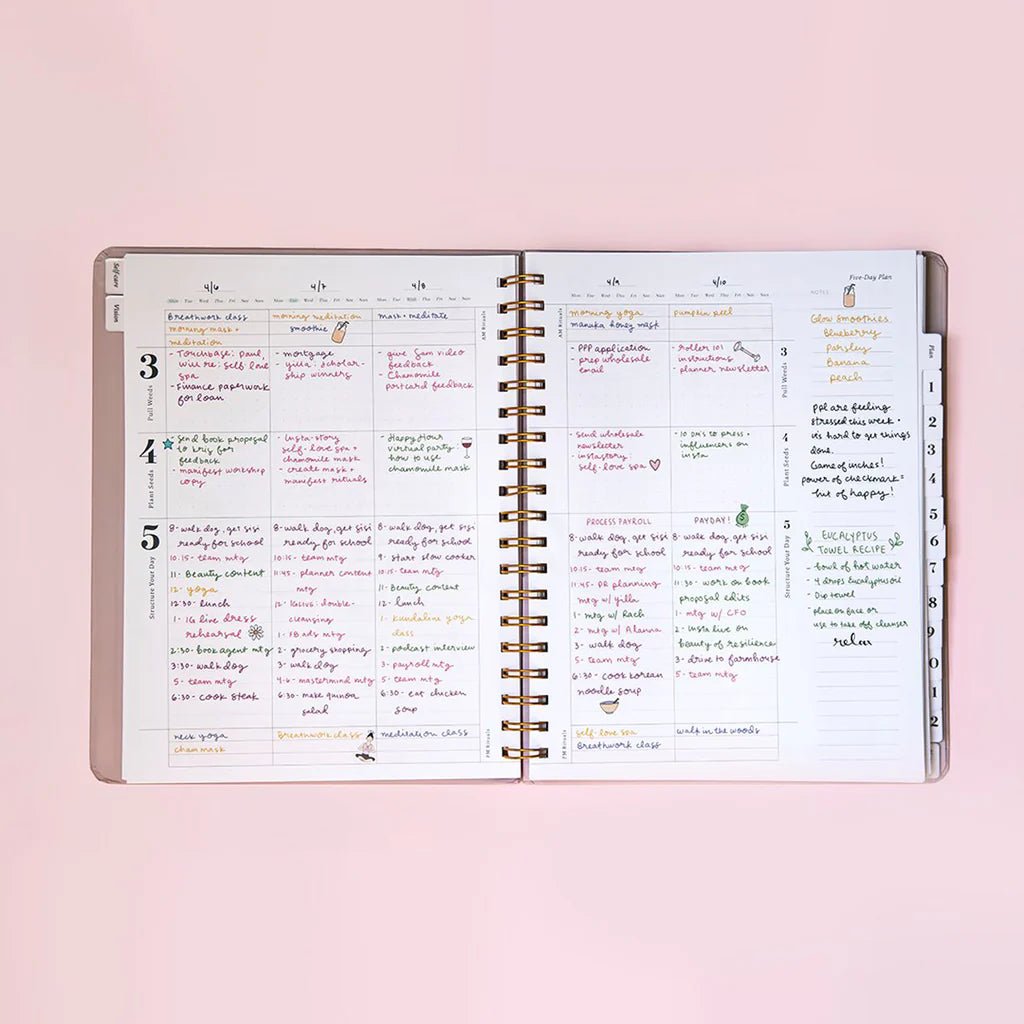 Self-care
Vision
4/6
4/7
4/8
Mon Tue Wed Thu Fri Sat Sun
Mon Tue Wed Thu Fri Sat Sun
Mon Tue Wed Thu Fri Sat Sun
AM Rituals
Breathwork class
morning mask +
meditation
morning meditation
smoothie
mask + meditate
3
Pull Weeds
- Touchbase: Paul,
will re: self love
spa
- Finance paperwork
for loan
- mortgage
- yilla: scholar-
ship winners
- give Sam video
feedback
- Chamomile
postcard feedback
4
Plant Seeds
- Send book proposal
to kris for
feedback
- manifest workshop
copy
- Insta-story
self-love spa +
chamomile mask
- create mask +
manifest rituals
- Happy Hour
virtual party -
how to use
chamomile mask
5
Structure Your Day
8- walk dog, get sisi
ready for school
10:15- team mtg
11- Beauty content
12- yoga
12:30- lunch
1- IG live dress
rehearsal
2:30- book agent mtg
3:30- walk dog
5- team mtg
6:30- cook steak
8- walk dog, get sisi
ready for school
10:15- team mtg
11:45- planner content
mtg
12- IGLIVE: double-
cleansing
1- FB ads mtg
2- grocery shopping
3- walk dog
4-6- mastermind mtg
6:30- make quinoa
salad
8- walk dog, get sisi
ready for school
9- start slow cooker
10:15- team mtg
11- Beauty content
12- lunch
1- kundalini yoga
class
2- podcast interview
3- payroll mtg
5- team mtg
6:30- eat chicken
soup
PM Rituals
neck yoga
cham mask
Breathwork class
meditation class
4/9
4/10
Mon Tue Wed Thu Fri Sat Sun
Mon Tue Wed Thu Fri Sat Sun
AM Rituals
morning yoga
manuka honey mask
pumpkin peel
- PPP application
- prep wholesale
email
- roller 101
instructions
- planner newsletter
3
Pull Weeds
- Send wholesale
newsletter
- instastory:
self-love spa
- 10 DM's to press +
influencers on
insta
4
Plant Seeds
PROCESS PAYROLL
8- walk dog, get sisi
ready for school
10:15- team mtg
11:45- PR planning
mtg w/ yilla
1- mtg w/ Rach
2- mtg w/ Alanna
3- walk dog
5- team mtg
6:30- cook korean
noodle soup
PAYDAY!
8- walk dog, get sisi
ready for school
10:15- team mtg
11:30- work on book
proposal edits
1- mtg w/ CFO
2- insta live on
beauty of resilience
3- drive to farmhouse
5- team mtg
5
Structure Your Day
PM Rituals
self-love spa
Breathwork class
walk in the woods
Five-Day Plan
NOTES
Glow Smoothies
Blueberry
Parsley
Banana
peach
ppl are feeling
stressed this week +
it's hard to get things
done.
Game of inches!
power of checkmark =
hit of happy!
EUCALYPTUS
TOWEL RECIPE
- bowl of hot water
- 4 drops Eucalyptus oil
- Dip towel
- place on face or
use to take off cleanser
relax
Plan
1
2
3
4
5
6
7
8
9
0
1
2